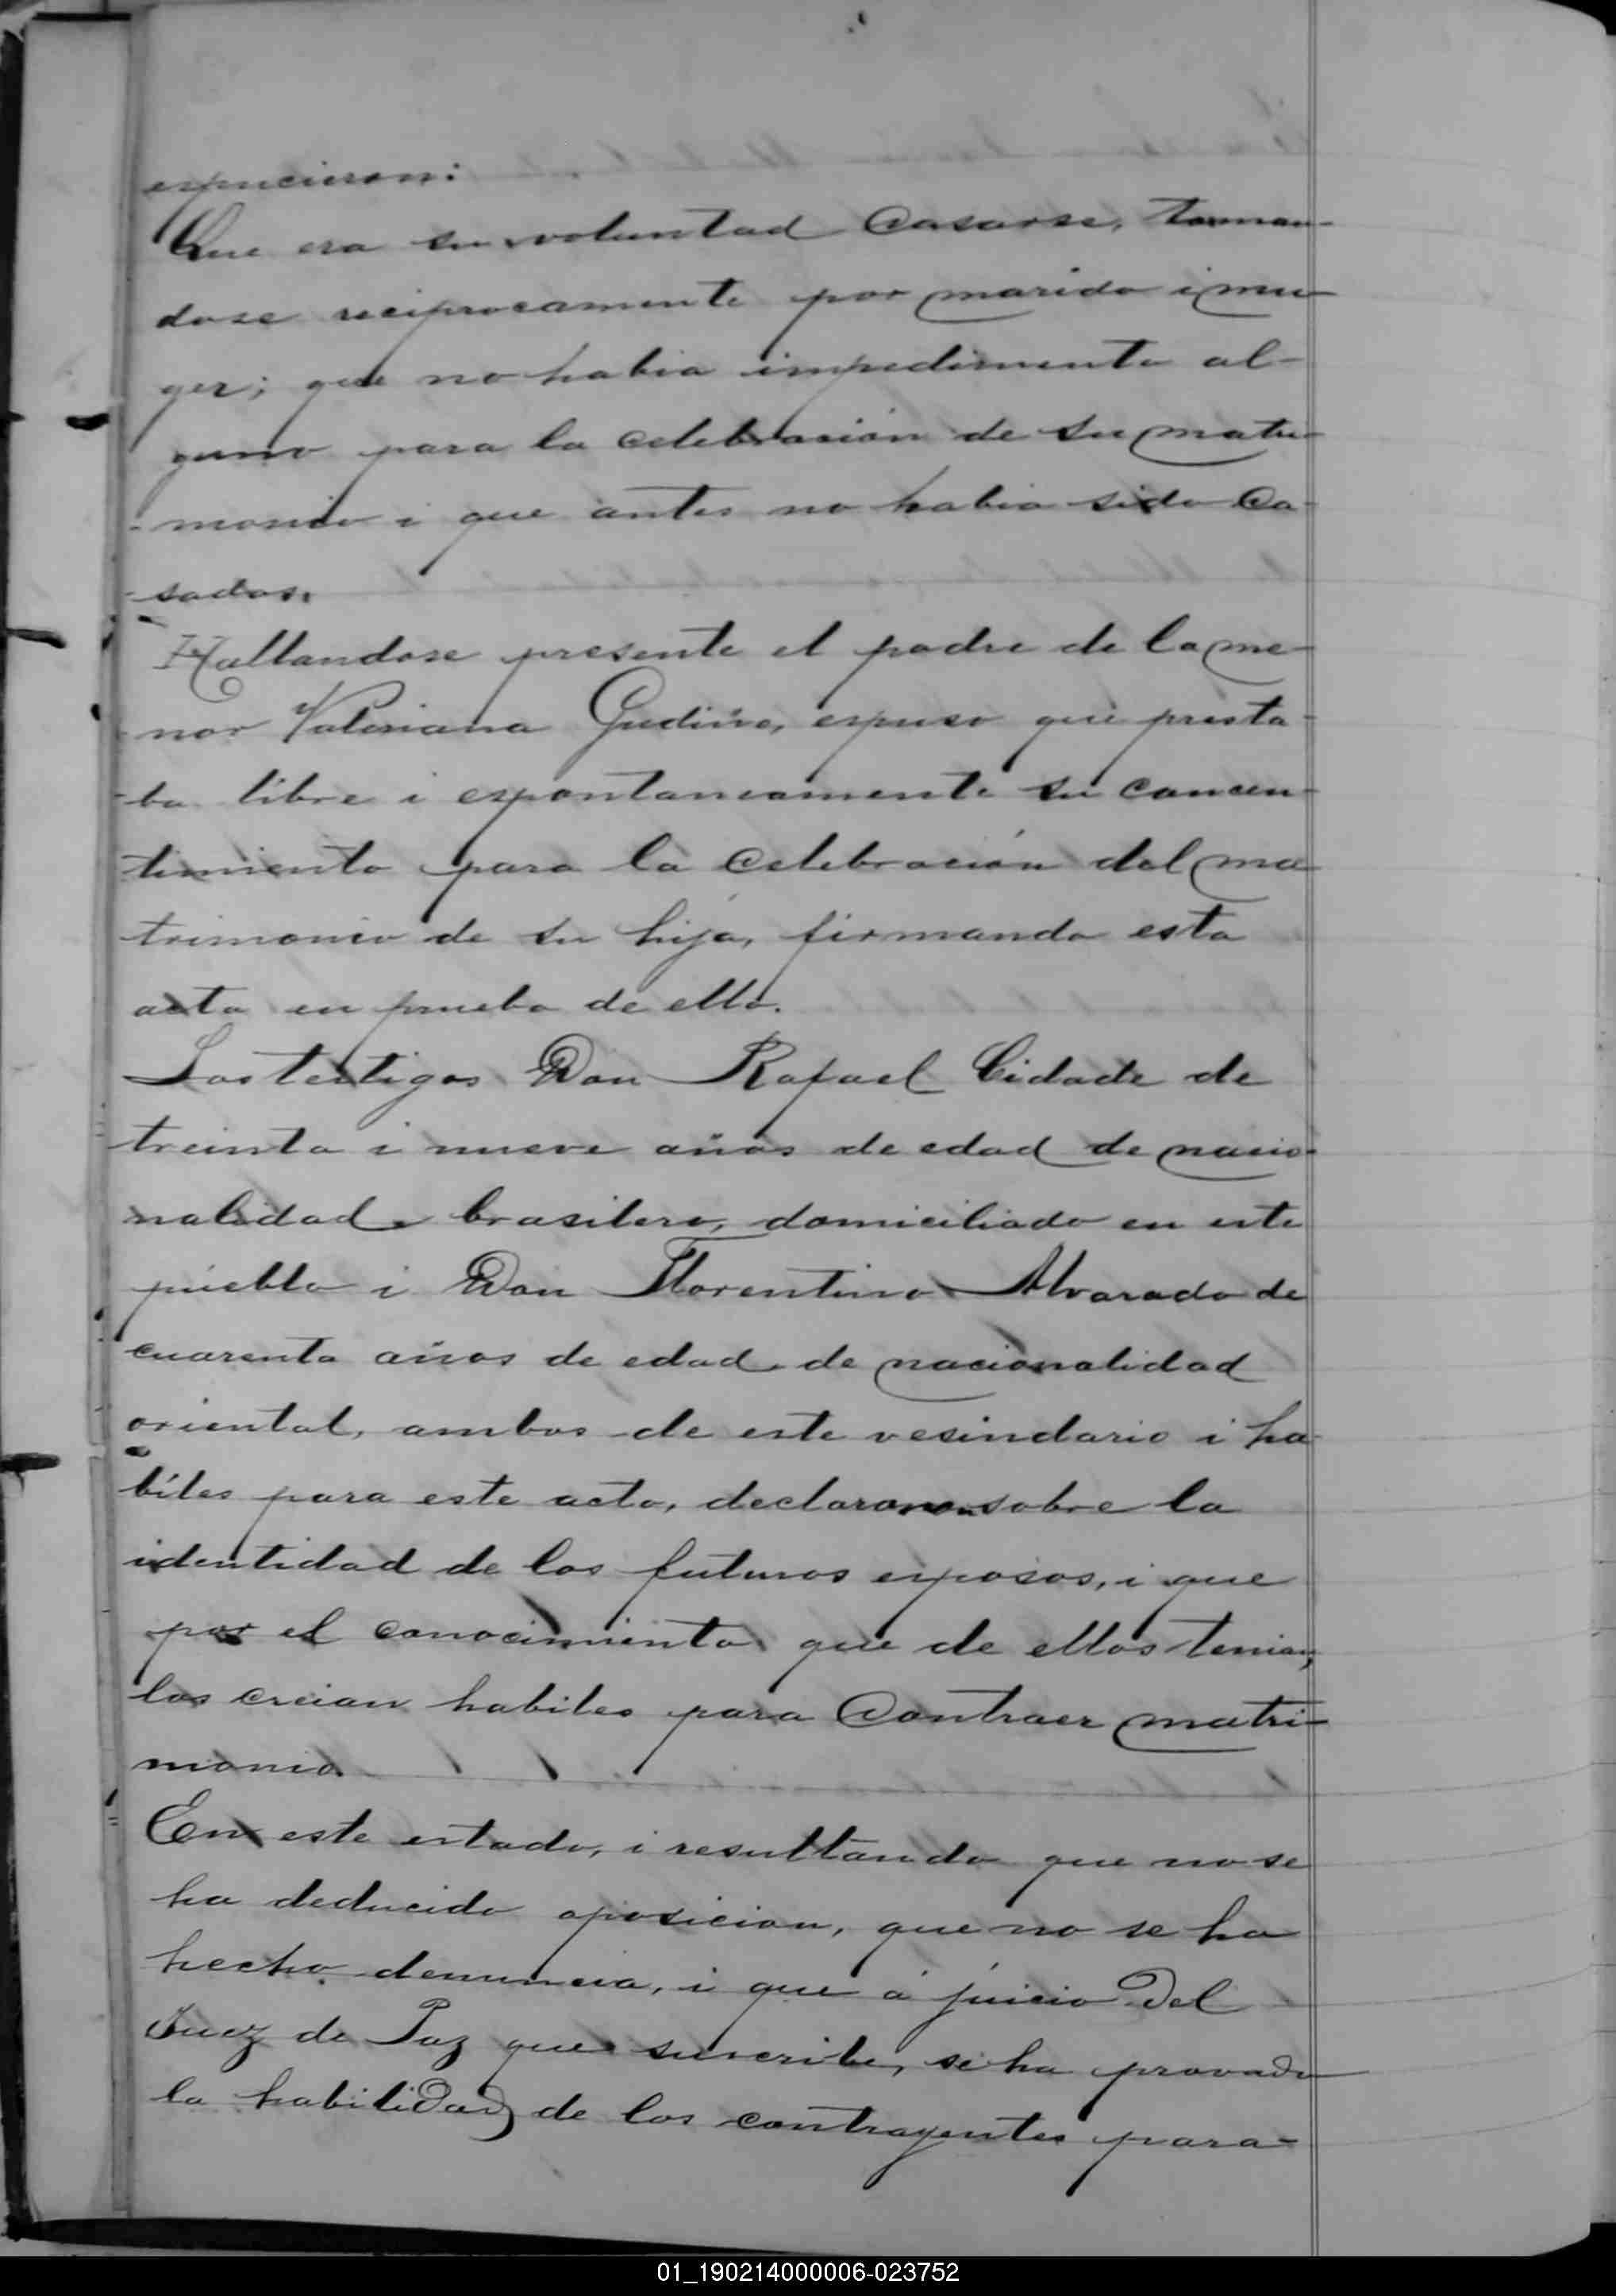 espucieron:
Que era su voluntad casarse, toman-
dose reciprocamente por marido i mu-
ger; que no habia impedimento al-
guno para la celebrasión de su matri-
-monio i que antes no habia sido ca-
-sados.
Hallandose presente el padre de la me-
nor Valeriana Gudiño, espuso que presta-
-ba libre i espontaneamente su concen-
timiento para la celebración del ma-
trimonio de su hija, firmando esta
acta en prueba de ello.
Los testigos Don Rafael Cidade de
treinta i nueve años de edad de nacio-
nalidad brasilero, domiciliado en este
pueblo i Don Florentino Alvarado de
cuarenta años de edad de nacionalidad
oriental, ambos de este vesindario i ha-
biles para este acto, declararon sobre la
identidad de los futuros esposos, i que
por el conocimiento que de ellos tenian,
los creian habiles para contraer matri-
monio.
En este estado, i resultando que no se
ha deducido oposicion, que no se ha
hecho denuncia, i que á juicio del
Juez de Paz que suscribe, se ha provado
la habilidad de los contrayentes para-
01_190214000006-023752